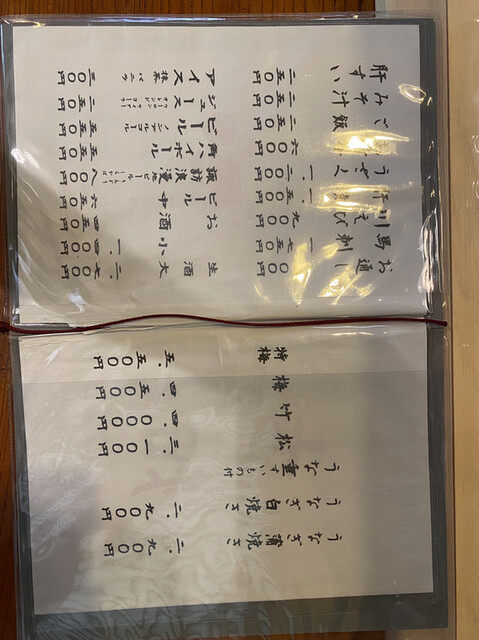 うなぎ蒲焼き 二、九〇〇円
うなぎ白焼き 二、九〇〇円
うな重 すいもの付
松 三、一〇〇円
竹 四、〇〇〇円
梅 四、五〇〇円
特梅 五、五〇〇円
お通し
馬刺し 一、七〇〇円
川えび 九〇〇円
うざく 一、二〇〇円
ご飯
みそ汁 二五〇円
肝すい 二五〇円
生酒
お酒 大
小
ビール 中 六五〇円
諏訪浪漫 八〇〇円
角ハイボール 五五〇円
ノンアルコールビール 五五〇円
ジュース 二五〇円
アイス 抹茶 バニラ 三〇〇円